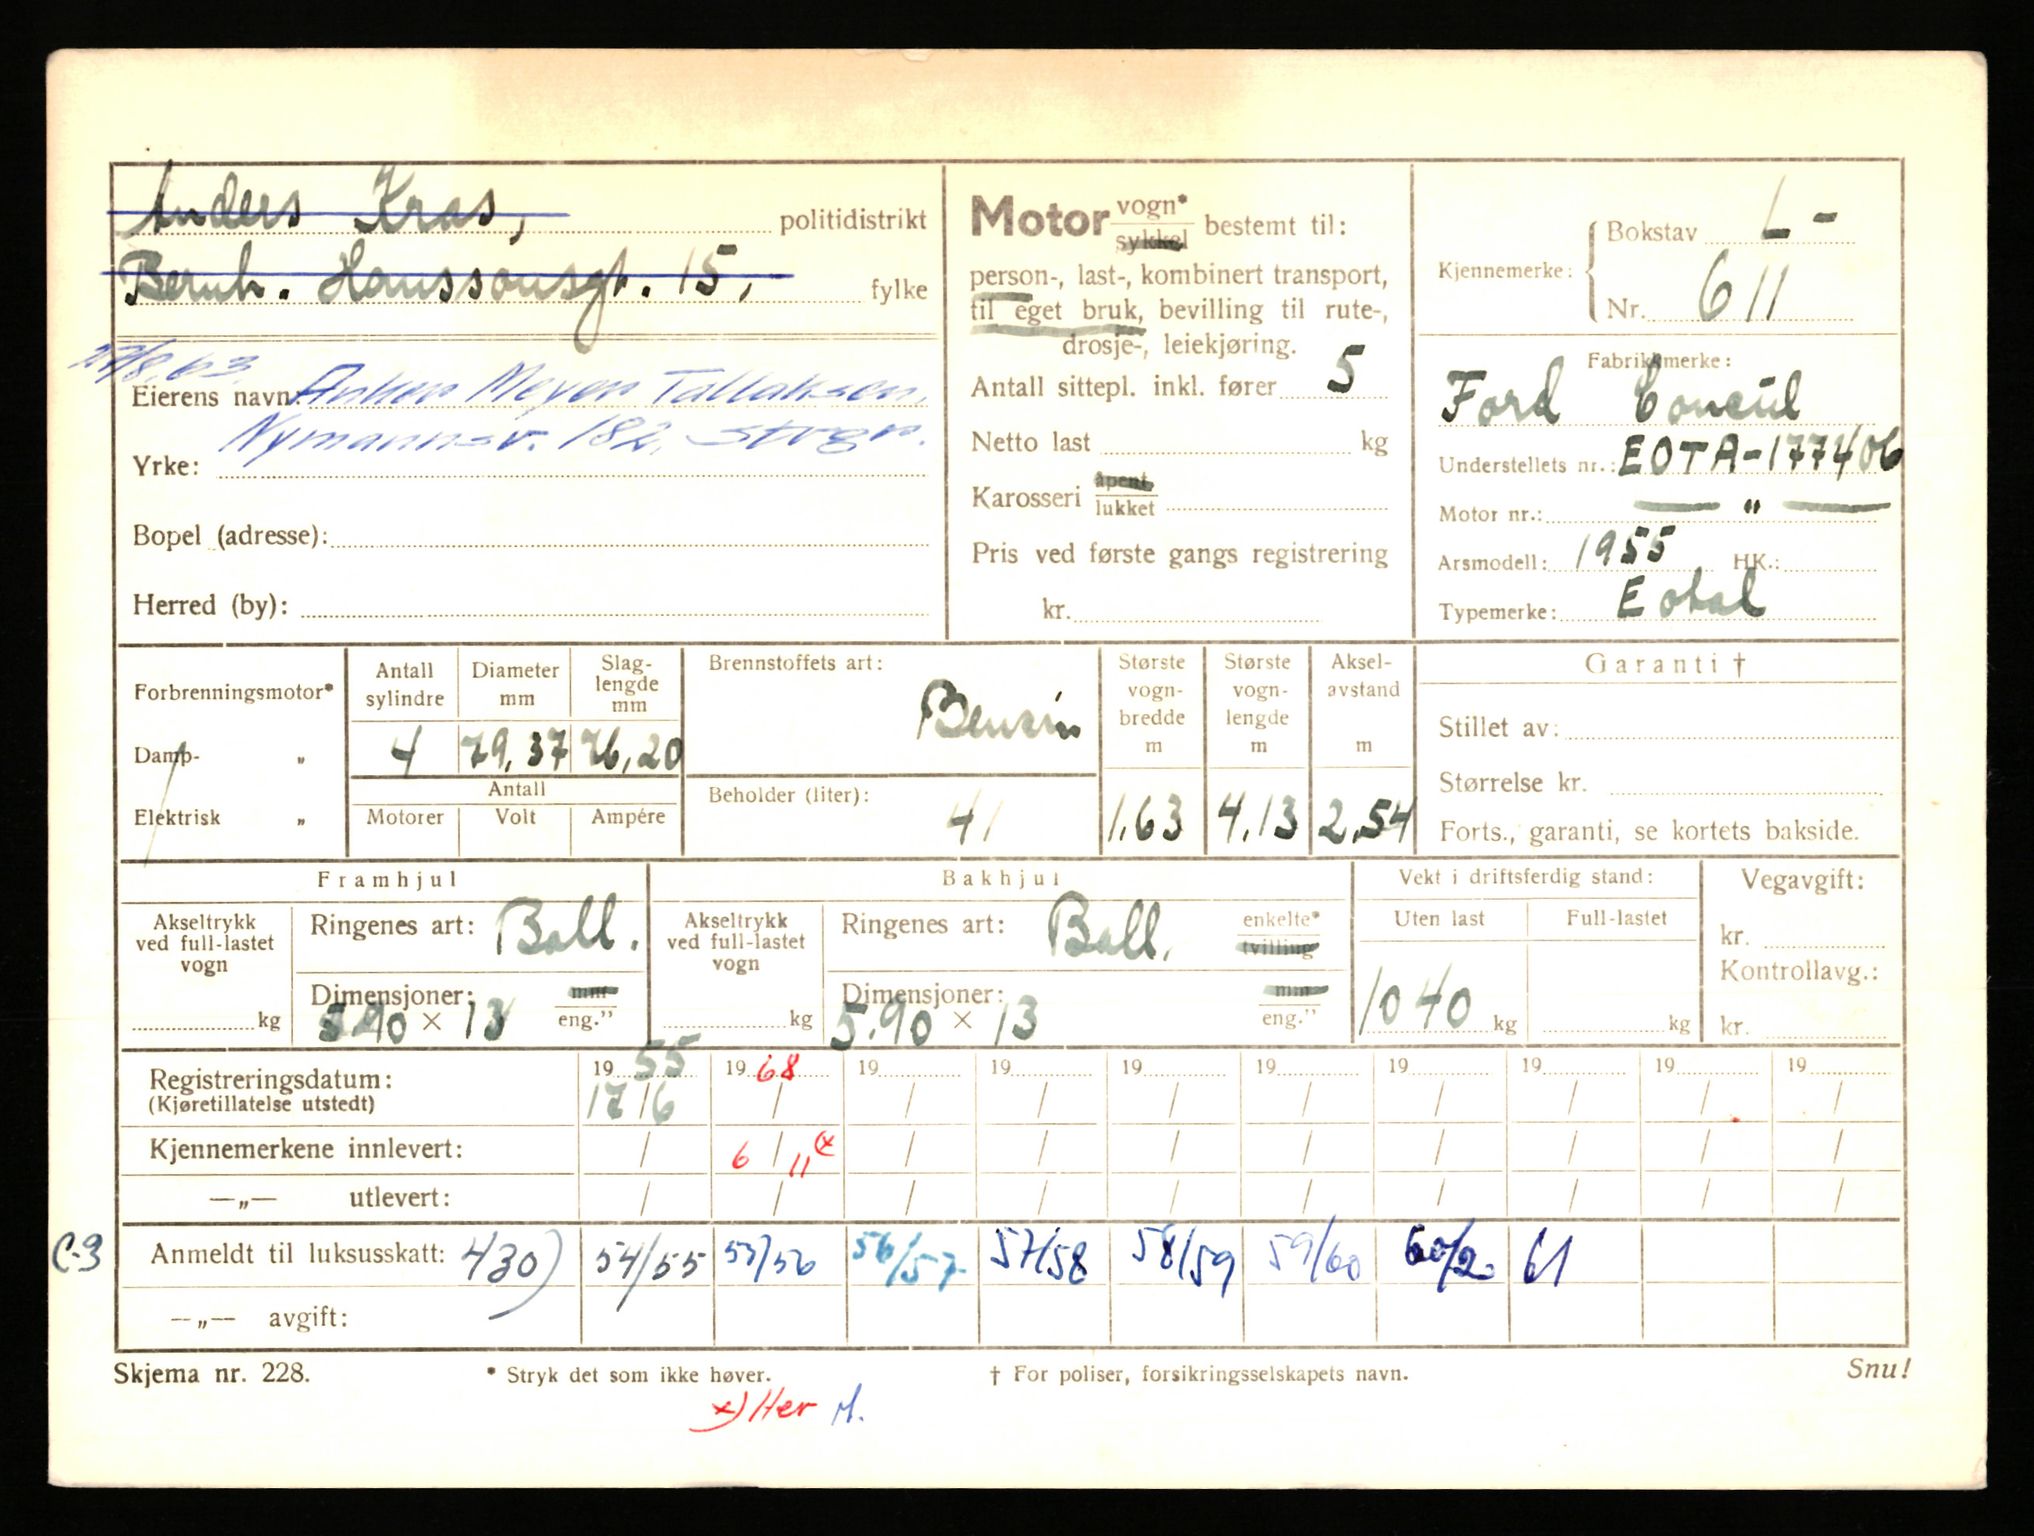 Anders Kras, politidistrikt
Bernh. Hanssonsgt. 15, fylke
Eierens navn: Anker Meyer Tallaksen,
Nymannsv. 182, Stvgr.
Yrke:
Bopel (adresse):
Herred (by):
Motor vogn* sykkel bestemt til:
person-, last-, kombinert transport,
til eget bruk, bevilling til rute-,
drosje-, leiekjøring.
Antall sittepl. inkl. fører 5
Netto last kg
Karosseri åpent lukket
Pris ved første gangs registrering
kr.
Kjennemerke: Bokstav L-
Nr. 611
Fabrikkmerke:
Ford Concul
Understellets nr.: EOTA-177406
Motor nr.: — " —
Arsmodell: 1955 HK.:
Typemerke: Eotal
Forbrenningsmotor*
Damp- „
Elektrisk „
Antall sylindre
Diameter mm
Slag-lengde mm
4 79,37 76,20
Antall
Motorer Volt Ampére
Brennstoffets art:
Bensin
Beholder (liter):
41
Største vogn-bredde m
1,63
Største vogn-lengde m
4,13
Aksel-avstand m
2,54
Garanti †
Stillet av:
Størrelse kr.
Forts., garanti, se kortets bakside.
Framhjul
Akseltrykk ved full-lastet vogn
kg
Ringenes art: Ball.
Dimensjoner: mm
5.90 × 13 eng."
Bakhjul
Akseltrykk ved full-lastet vogn
kg
Ringenes art: Ball. enkelte* tvilling
Dimensjoner: mm
5.90 × 13 eng."
Vekt i driftsferdig stand:
Uten last Full-lastet
1040 kg kg
Vegavgift:
kr.
Kontrollavg.:
kr.
Registreringsdatum: 1955 1968 19 19 19 19 19 19 19 19
(Kjøretillatelse utstedt) 17/6 / / / / / / / / /
Kjennemerkene innlevert: / 6/11 x) / / / / / / / /
—„— utlevert: / / / / / / / / / /
C-3 Anmeldt til luksusskatt: 430) 54/55 55/56 56/57 57/58 58/59 59/60 60/2. 61
—„— avgift:
Skjema nr. 228. * Stryk det som ikke høver. † For poliser, forsikringsselskapets navn. Snu!
x) Her